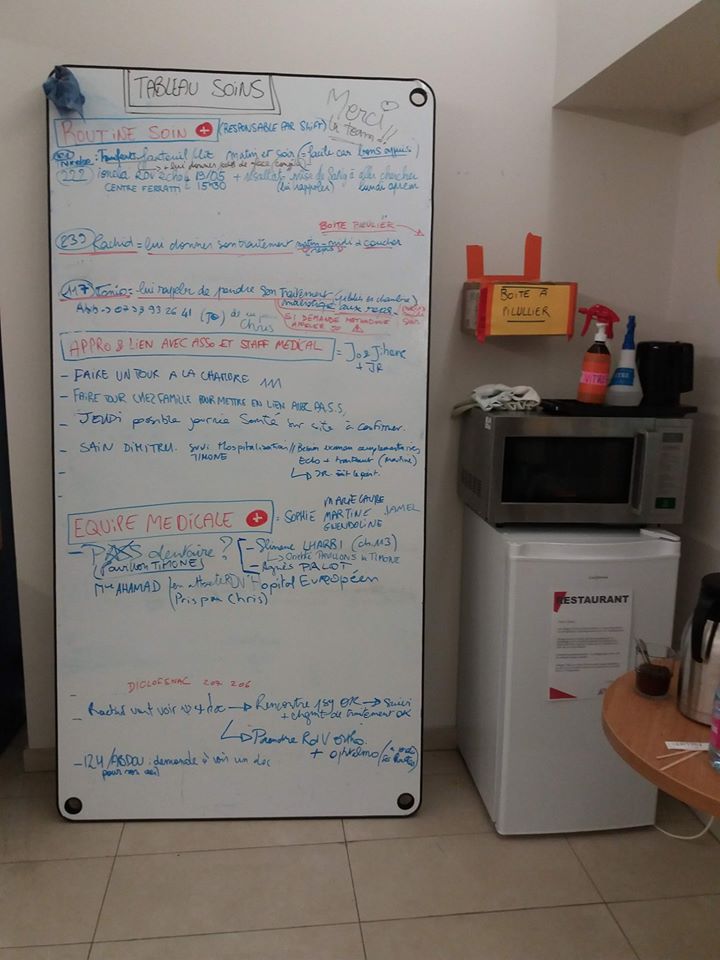 TABLEAU SOINS
Merci
la team!!
ROUTINE SOIN (RESPONSABLE PAR SHIFT)
: Transfert fauteuil/lit matin et soir (= facile car bons appuis)
222 RDV écho 19/05 + résultat prise de sang à aller chercher
CENTRE FERRATTI à 15H30 (lui rappeler) lundi aprem
BOITE PILULIER
239 Rachid = lui donner son traitement matin - midi + coucher
117 Tonio = lui rappeler de prendre son traitement (pilules en chambre)
aux repas
07 53 93 26 41 (JO)
Chris
SI DEMANDE METHADONE
APPELER JO
APPRO & LIEN AVEC ASSO ET STAFF MEDICAL = Jo & Jihane
+ JR
- FAIRE UN TOUR A LA CHAMBRE 111
- FAIRE TOUR CHEZ FAMILLE POUR METTRE EN LIEN AVEC PASS,
- JEUDI possible journée Santé sur site à confirmer.
- SAIN DIMITRU. suivi Hospitalisation // Besoin examen complémentaires
TIMONE Echo + traitement (Martine)
↳ JR fait le point.
EQUIPE MEDICALE = SOPHIE MARIE LAURE
MARTINE JAMEL
GWENDOLINE
- PASS dentaire ?
(Pavillon TIMONE)
- Slimane LHARBI (ch.113)
↳ Orienté PAVILLONS TIMONE
- Agnès PALOT
Mme AHAMAD (en attente RDV Hopital Européen
(Pris par Chris)
DICLOFENAC 207 206
Rachid veut voir doc → Rencontre 189 OK → Suivi
+ chgmt de traitement OK
↳ Prendre RdV ortho.
+ ophtalmo
- 124/ABDOU : demande à voir un doc
BOITE À
PILULLIER
VITRES
RESTAURANT